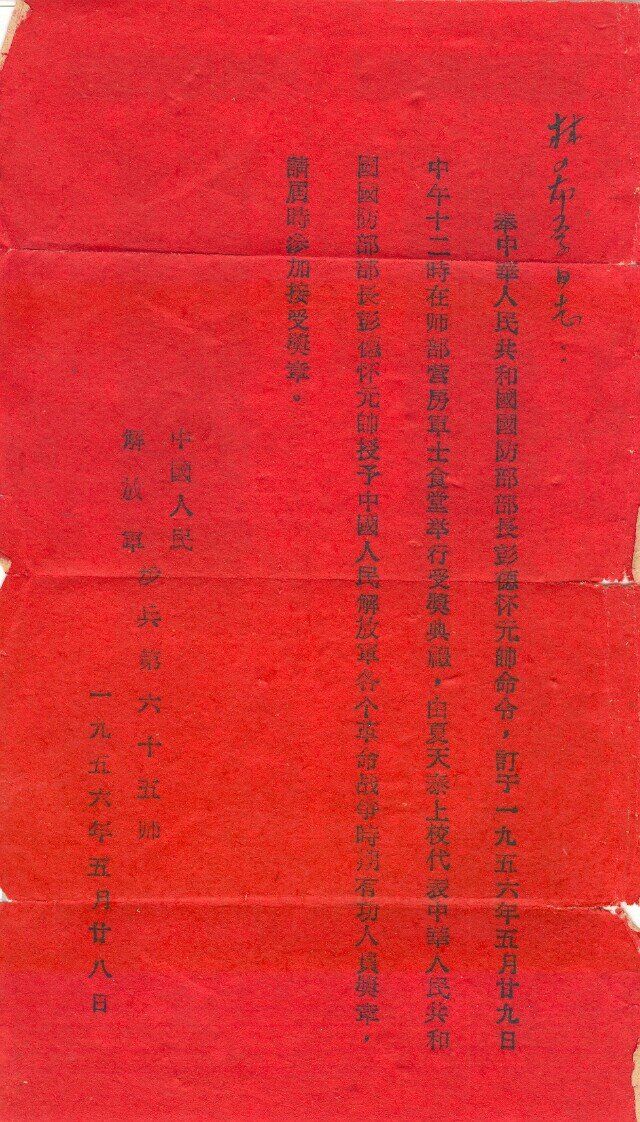 林 同志：
奉中華人民共和國國防部部長彭德怀元帥命令，訂于一九五六年五月廿九日
中午十二時在师部营房軍士食堂举行受奬典禮，由夏天泰上校代表中華人民共和
國國防部部長彭德怀元帥授予中國人民解放軍各个革命战爭時期有功人員奬章，
請屆時参加接受奬章。
中國人民
解放軍步兵第六十五师
一九五六年五月廿八日